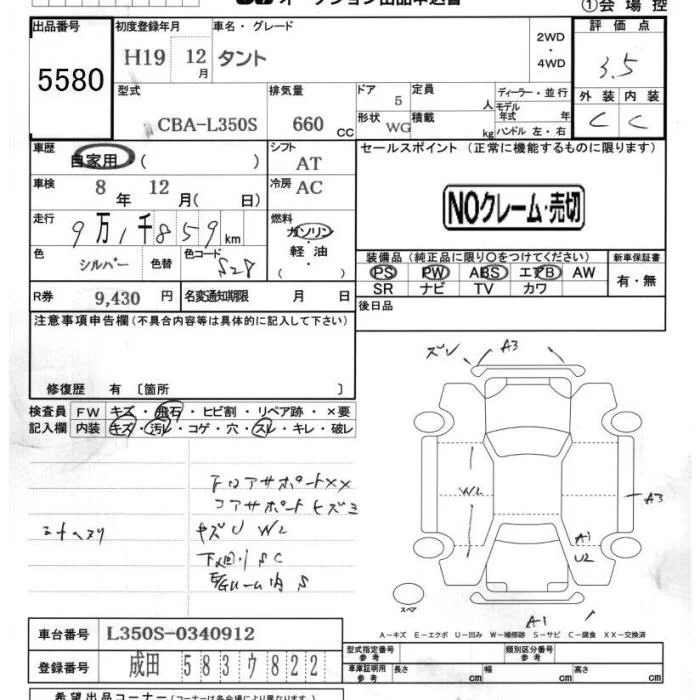 オークション出品申込書
①会場控
出品番号 5580
初度登録年月 H19 12月
車名・グレード タント
2WD・4WD
評価点 3.5
型式 CBA-L350S
排気量 660 CC
ドア 5
形状 WG
定員 人
積載 kg
ディーラー・並行
モデル年式 年
ハンドル 左・右
外装 内装
C C
車歴 自家用 ( )
シフト AT
セールスポイント (正常に機能するものに限ります)
車検 8年 12月( 日)
冷房 AC
NOクレーム・売切
走行 9万1千859km
燃料 ガソリン・軽油 ( )
色 シルバー 色替
色コード S28
装備品 (純正品に限り○をつけてください)
新車保証書 有・無
PS PW ABS エアB AW
SR ナビ TV カワ
R券 9,430円
名変通知期限 月 日
後日品
注意事項申告欄 (不具合内容等は具体的に記入して下さい)
修復歴 有 〔箇所 〕
検査員記入欄
FW キズ・飛石・ヒビ割・リペア跡・×要
内装 キズ・汚レ・コゲ・穴・スレ・キレ・破レ
コアサポートヒズミ
キズU W2
下廻りSC
ズレ A3
W2
A3
A1
U2
スペア
A1
A-キズ E-エクボ U-凹み W-補修跡 S-サビ C-腐食 XX-交換済
車台番号 L350S-0340912
登録番号 成田 583ウ822
型式指定番号 参考
類別区分番号 参考
車庫証明用 参考 長さ cm 幅 cm 高さ cm
希望出品コーナー